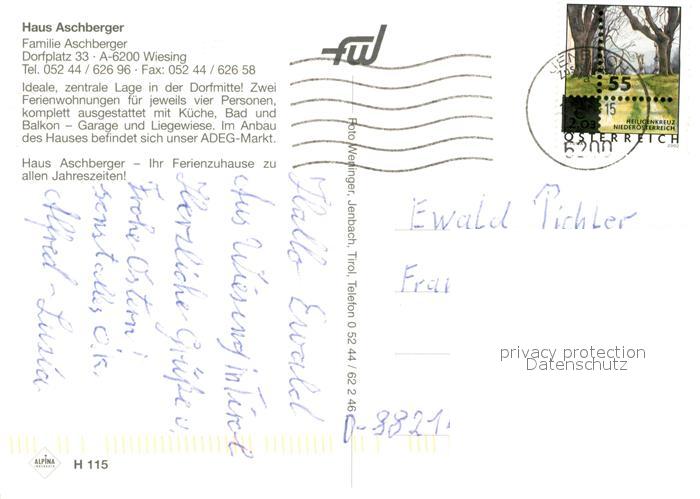 Haus Aschberger
Familie Aschberger
Dorfplatz 33 · A-6200 Wiesing
Tel. 052 44 / 626 96 · Fax: 052 44 / 626 58
Ideale, zentrale Lage in der Dorfmitte! Zwei
Ferienwohnungen für jeweils vier Personen,
komplett ausgestattet mit Küche, Bad und
Balkon – Garage und Liegewiese. Im Anbau
des Hauses befindet sich unser ADEG-Markt.
Haus Aschberger – Ihr Ferienzuhause zu
allen Jahreszeiten!
Hallo Ewald
Aus Wiesing in Tirol
Herzliche Grüße u.
Frohe Ostern!
sonst alles o.k.
Alfred - Luzia
ALPINA
H 115
fwd
Foto Weninger, Jenbach, Tirol, Telefon 0 52 44 / 62 2 46
55
HEILIGENKREUZ
NIEDERÖSTERREICH
ÖSTERREICH
2002
15
6200
Ewald Pichler
Fra
D-8821
privacy protection
Datenschutz